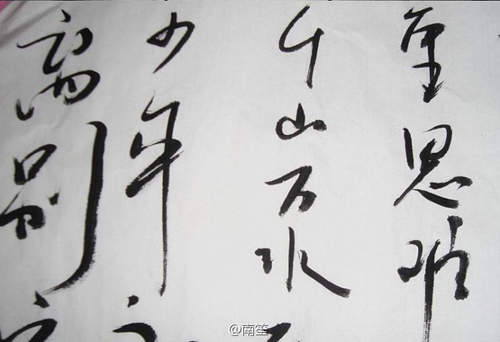 思
千山万水
少年
离别
@南笙